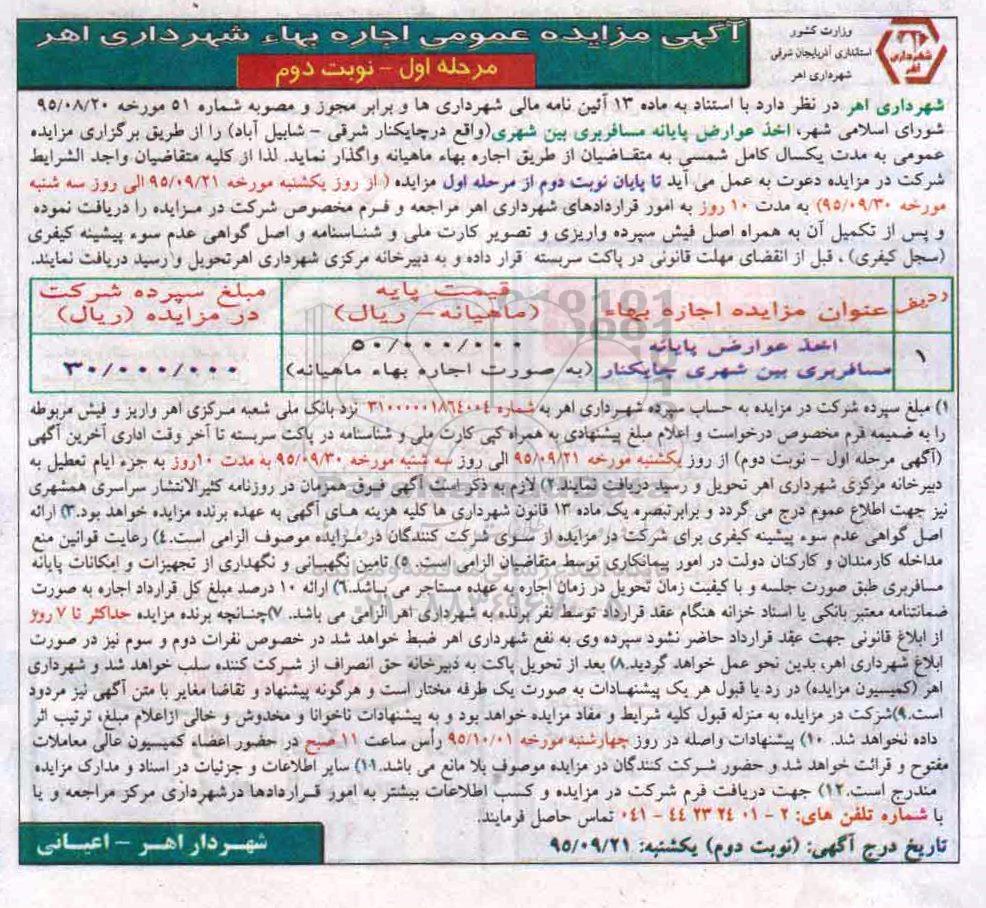 آگهی مزایده عمومی اجاره بهاء شهرداری اهر
مرحله اول - نوبت دوم
وزارت کشور
استانداری آذربایجان شرقی
شهرداری اهر
شهرداری اهر در نظر دارد با استناد به ماده ۱۳ آئین نامه مالی شهرداری ها و برابر مجوز و مصوبه شماره ۵۱ مورخه ۹۵/۰۸/۲۰
شورای اسلامی شهر، اخذ عوارض پایانه مسافربری بین شهری(واقع درچایکنار شرقی - شابیل آباد) را از طریق برگزاری مزایده
عمومی به مدت یکسال کامل شمسی به متقاضیان از طریق اجاره بهاء ماهیانه واگذار نماید. لذا از کلیه متقاضیان واجد الشرایط
شرکت در مزایده دعوت به عمل می آید تا پایان نوبت دوم از مرحله اول مزایده ( از روز یکشنبه مورخه ۹۵/۰۹/۲۱ الی روز سه شنبه
مورخه ۹۵/۰۹/۳۰) به مدت ۱۰ روز به امور قراردادهای شهرداری اهر مراجعه و فرم مخصوص شرکت در مزایده را دریافت نموده
و پس از تکمیل آن به همراه اصل فیش سپرده واریزی و تصویر کارت ملی و شناسنامه و اصل گواهی عدم سوء پیشینه کیفری
(سجل کیفری) ، قبل از انقضای مهلت قانونی در پاکت سربسته قرار داده و به دبیرخانه مرکزی شهرداری اهرتحویل و رسید دریافت نمایند.
ردیف عنوان مزایده اجاره بهاء قیمت پایه (ماهیانه- ریال) مبلغ سپرده شرکت در مزایده (ریال)
۱ اخذ عوارض پایانه مسافربری بین شهری چایکنار ۵۰/۰۰۰/۰۰۰ (به صورت اجاره بهاء ماهیانه) ۳۰/۰۰۰/۰۰۰
۱) مبلغ سپرده شرکت در مزایده به حساب سپرده شهرداری اهر به شماره ۳۱۰۰۰۰۰۱۸۶۴۰۰۴ نزد بانک ملی شعبه مرکزی اهر واریز و فیش مربوطه
را به ضمیمه فرم مخصوص درخواست و اعلام مبلغ پیشنهادی به همراه کپی کارت ملی و شناسنامه در پاکت سربسته تا آخر وقت اداری آخرین آگهی
(آگهی مرحله اول - نوبت دوم) از روز یکشنبه مورخه ۹۵/۰۹/۲۱ الی روز سه شنبه مورخه ۹۵/۰۹/۳۰ به مدت ۱۰روز به جزء ایام تعطیل به
دبیرخانه مرکزی شهرداری اهر تحویل و رسید دریافت نمایند.۲) لازم به ذکر است آگهی فوق همزمان در روزنامه کثیرالانتشار سراسری همشهری
نیز جهت اطلاع عموم درج می گردد و برابرتبصره یک ماده ۱۳ قانون شهرداری ها کلیه هزینه های آگهی به عهده برنده مزایده خواهد بود.۳) ارائه
اصل گواهی عدم سوء پیشینه کیفری برای شرکت در مزایده از سوی شرکت کنندگان در مزایده موصوف الزامی است.۴) رعایت قوانین منع
مداخله کارمندان و کارکنان دولت در امور پیمانکاری توسط متقاضیان الزامی است. ۵) تامین نگهبانی و نگهداری از تجهیزات و امکانات پایانه
مسافربری طبق صورت جلسه و با کیفیت زمان تحویل در زمان اجاره به عهده مستاجر می باشد.۶) ارائه ۱۰ درصد مبلغ کل قرارداد اجاره به صورت
ضمانتنامه معتبر بانکی یا اسناد خزانه هنگام عقد قرارداد توسط نفر برنده به شهرداری اهر الزامی می باشد. ۷)چنانچه برنده مزایده حداکثر تا ۷ روز
از ابلاغ قانونی جهت عقد قرارداد حاضر نشود سپرده وی به نفع شهرداری اهر ضبط خواهد شد در خصوص نفرات دوم و سوم نیز در صورت
ابلاغ شهرداری اهر، بدین نحو عمل خواهد گردید.۸) بعد از تحویل پاکت به دبیرخانه حق انصراف از شرکت کننده سلب خواهد شد و شهرداری
اهر (کمیسیون مزایده) در رد یا قبول هر یک پیشنهادات به صورت یک طرفه مختار است و هرگونه پیشنهاد و تقاضا مغایر با متن آگهی نیز مردود
است.۹)شرکت در مزایده به منزله قبول کلیه شرایط و مفاد مزایده خواهد بود و به پیشنهادات ناخوانا و مخدوش و خالی ازاعلام مبلغ، ترتیب اثر
داده نخواهد شد. ۱۰) پیشنهادات واصله در روز چهارشنبه مورخه ۹۵/۱۰/۰۱ رأس ساعت ۱۱ صبح در حضور اعضاء کمیسیون عالی معاملات
مفتوح و قرائت خواهد شد و حضور شرکت کنندگان در مزایده موصوف بلا مانع می باشد.۱۱) سایر اطلاعات و جزئیات در اسناد و مدارک مزایده
مندرج است.۱۲) جهت دریافت فرم شرکت در مزایده و کسب اطلاعات بیشتر به امور قراردادها درشهرداری مرکز مراجعه و یا
با شماره تلفن های: ۲ - ۰۱ ۲۴ ۲۳ ۴۴ - ۰۴۱ تماس حاصل فرمایند.
تاریخ درج آگهی: (نوبت دوم) یکشنبه: ۹۵/۰۹/۲۱
شهردار اهر - اعیانی